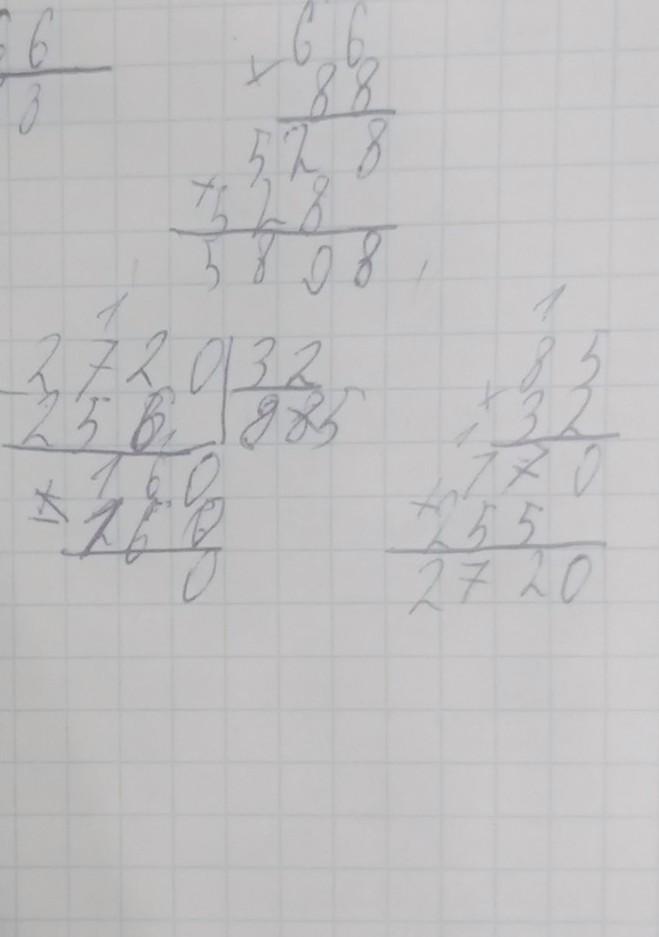 6 6
3
6 6
× 88
52 8
+528
5808
1
2720|32
- 256 | 85
160
- 160
0
1
85
× 32
1
170
+255
2720